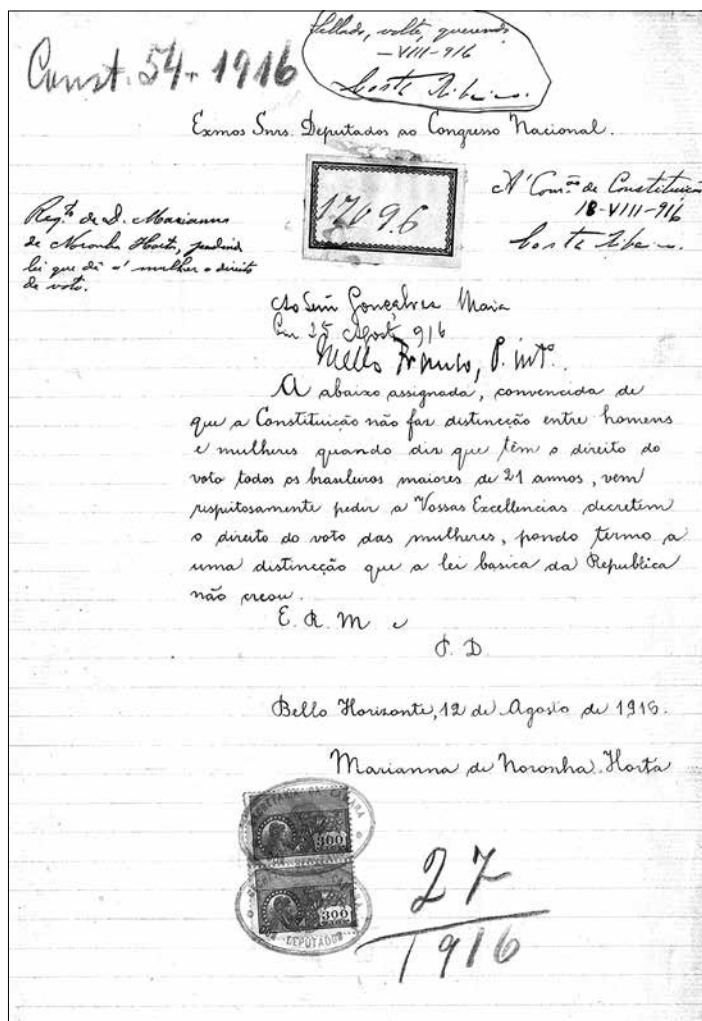 Const. 54-1916
Sellado, volte, querendo
-VIII-916
Costa Ribeiro.
Exmos Snrs. Deputados ao Congresso Nacional.
17096
Á Com.ão de Constituição
18-VIII-916
Costa Ribeiro.
Req.to de D. Marianna
de Noronha Horta, pedindo
lei que dê á mulher o direito
de voto.
Ao Snr Gonçalves Maia
Em 25 Agosto 916
Mello Franco, P. int.o
A abaixo assignada, convencida de
que a Constituição não faz distincção entre homens
e mulheres quando diz que têm o direito do
voto todos os brasileiros maiores de 21 annos, vem
respeitosamente pedir a Vossas Excellencias decretem
o direito do voto das mulheres, pondo termo a
uma distincção que a lei basica da Republica
não creou.
E. R. M e
J. D.
Bello Horizonte, 12 de Agosto de 1916.
Marianna de Noronha Horta
SECRETARIA DA CAMARA
300
300
DEPUTADOS
27
1916